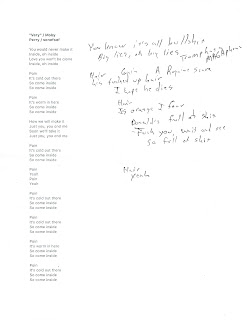 You would never make it
Inside, oh inside
Love you won't be come
Inside, oh inside
Pain
It's cold out there
So come inside
So come inside
Pain
It's warm in here
So come inside
So come inside
How we will make it
Just you, you and me
Soon we'll take it
Just you, you and me
Pain
It's cold out there
So come inside
So come inside
Pain
Yeah
Pain
Yeah
Pain
It's cold out there
So come inside
So come inside
Pain
It's cold out there
So come inside
So come inside
Pain
It's warm in here
So come inside
So come inside
Pain
It's cold out there
So come inside
So come inside
You know it's all bullshit
Big lies, oh big lies
Hair
fucked up hair
I hope he dies
Hair
Its orange I fear
Donald's full of shit
Fuck you, wait and see
So full of shit
Hair
Yeah